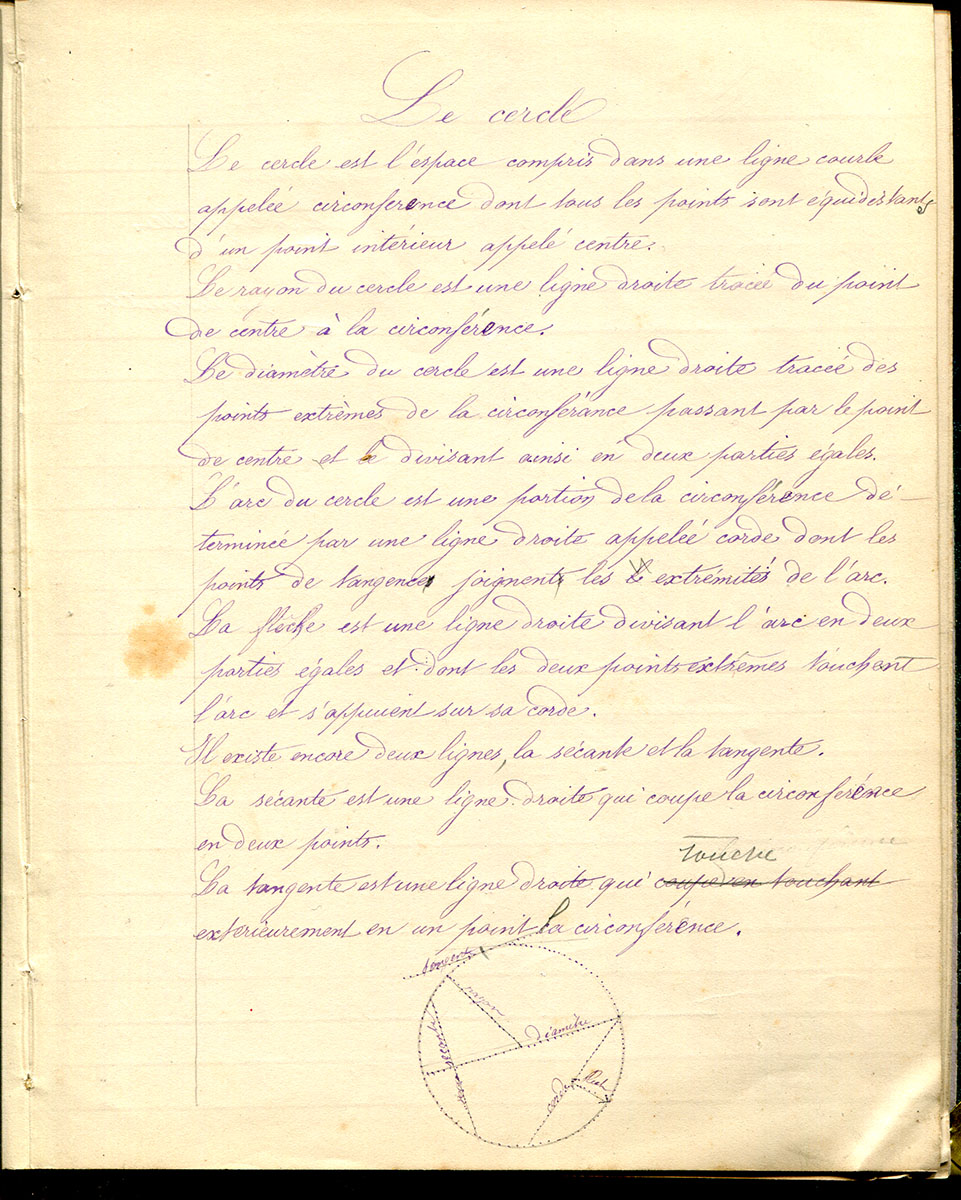 Le cercle
Le cercle est l'éspace compris dans une ligne courbe
appeleé circonference dont tous les points sont équidistants
d'un point intérieur appelé centre.
Le rayon du cercle est une ligne droite traceé du point
de centre à la circonférence.
Le diamètre du cercle est une ligne droite traceé des
points extrèmes de la circonférance passant par le point
de centre et le divisant ainsi en deux parties égales.
L'arc du cercle est une portion de la circonférence dé-
terminée par une ligne droite appeleé corde dont les
points de tangence joignent les extrémités de l'arc.
La flèche est une ligne droite divisant l'arc en deux
parties égales et dont les deux points extrèmes touchent
l'arc et s'appuient sur sa corde.
Il existe encore deux lignes, la sécante et la tangente.
La sécante est une ligne droite qui coupe la circonférence
en deux points.
touche
La tangente est une ligne droite qui coupe en touchant
exterieurement en un point la circonférence.
tangente
rayon
diamètre
sécante
corde